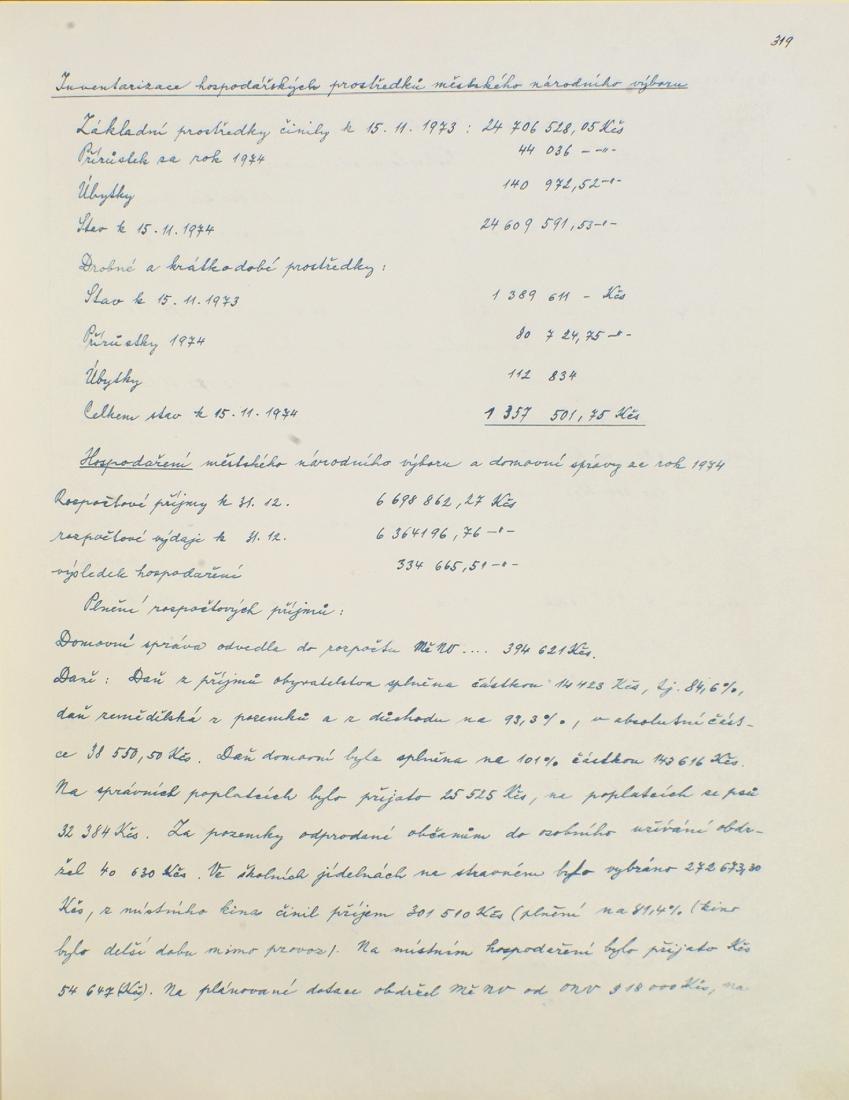 319
Inventarizace hospodářských prostředků městského národního výboru
Základní prostředky činily k 15.11.1973 : 24 706 528,05 Kčs
Přírůstek za rok 1974 44 036 – -"-
Úbytky 140 972,52 -"-
Stav k 15.11.1974 24 609 591,53 -"-
Drobné a krátkodobé prostředky:
Stav k 15.11.1973 1 389 611 – Kčs
Přírůstky 1974 80 724,75 -"-
Úbytky 112 834
Celkem stav k 15.11.1974 1 357 501,75 Kčs
Hospodaření městského národního výboru a domovní správy za rok 1974
Rozpočtové příjmy k 31.12. 6 698 862,27 Kčs
rozpočtové výdaje k 31.12. 6 364196,76 -"-
výsledek hospodaření 334 665,51 -"-
Plnění rozpočtových příjmů:
Domovní správa odvedla do rozpočtu MěNV .... 394 621 Kčs.
Daně: Daň z příjmů obyvatelstva splněna částkou 14 423 Kčs, tj. 84,6%,
daň zemědělská z pozemků a z důchodu na 93,3%, v absolutní část-
ce 38 550,50 Kčs. Daň domovní byla splněna na 101% částkou 143 616 Kčs.
Na správních poplatcích bylo přijato 25 525 Kčs, na poplatcích ze psů
32 384 Kčs. Za pozemky odprodané občanům do osobního užívání obdr-
žel 40 630 Kčs. Ve školních jídelnách na stravném bylo vybráno 272 673,30
Kčs, z místního kina činil příjem 301 510 Kčs (plnění na 81,4% (kino
bylo delší dobu mimo provoz). Na místním hospodaření bylo přijato Kčs
54 647 (Kčs). Na plánované dotace obdržel MěNV od ONV 918 000 Kčs, na